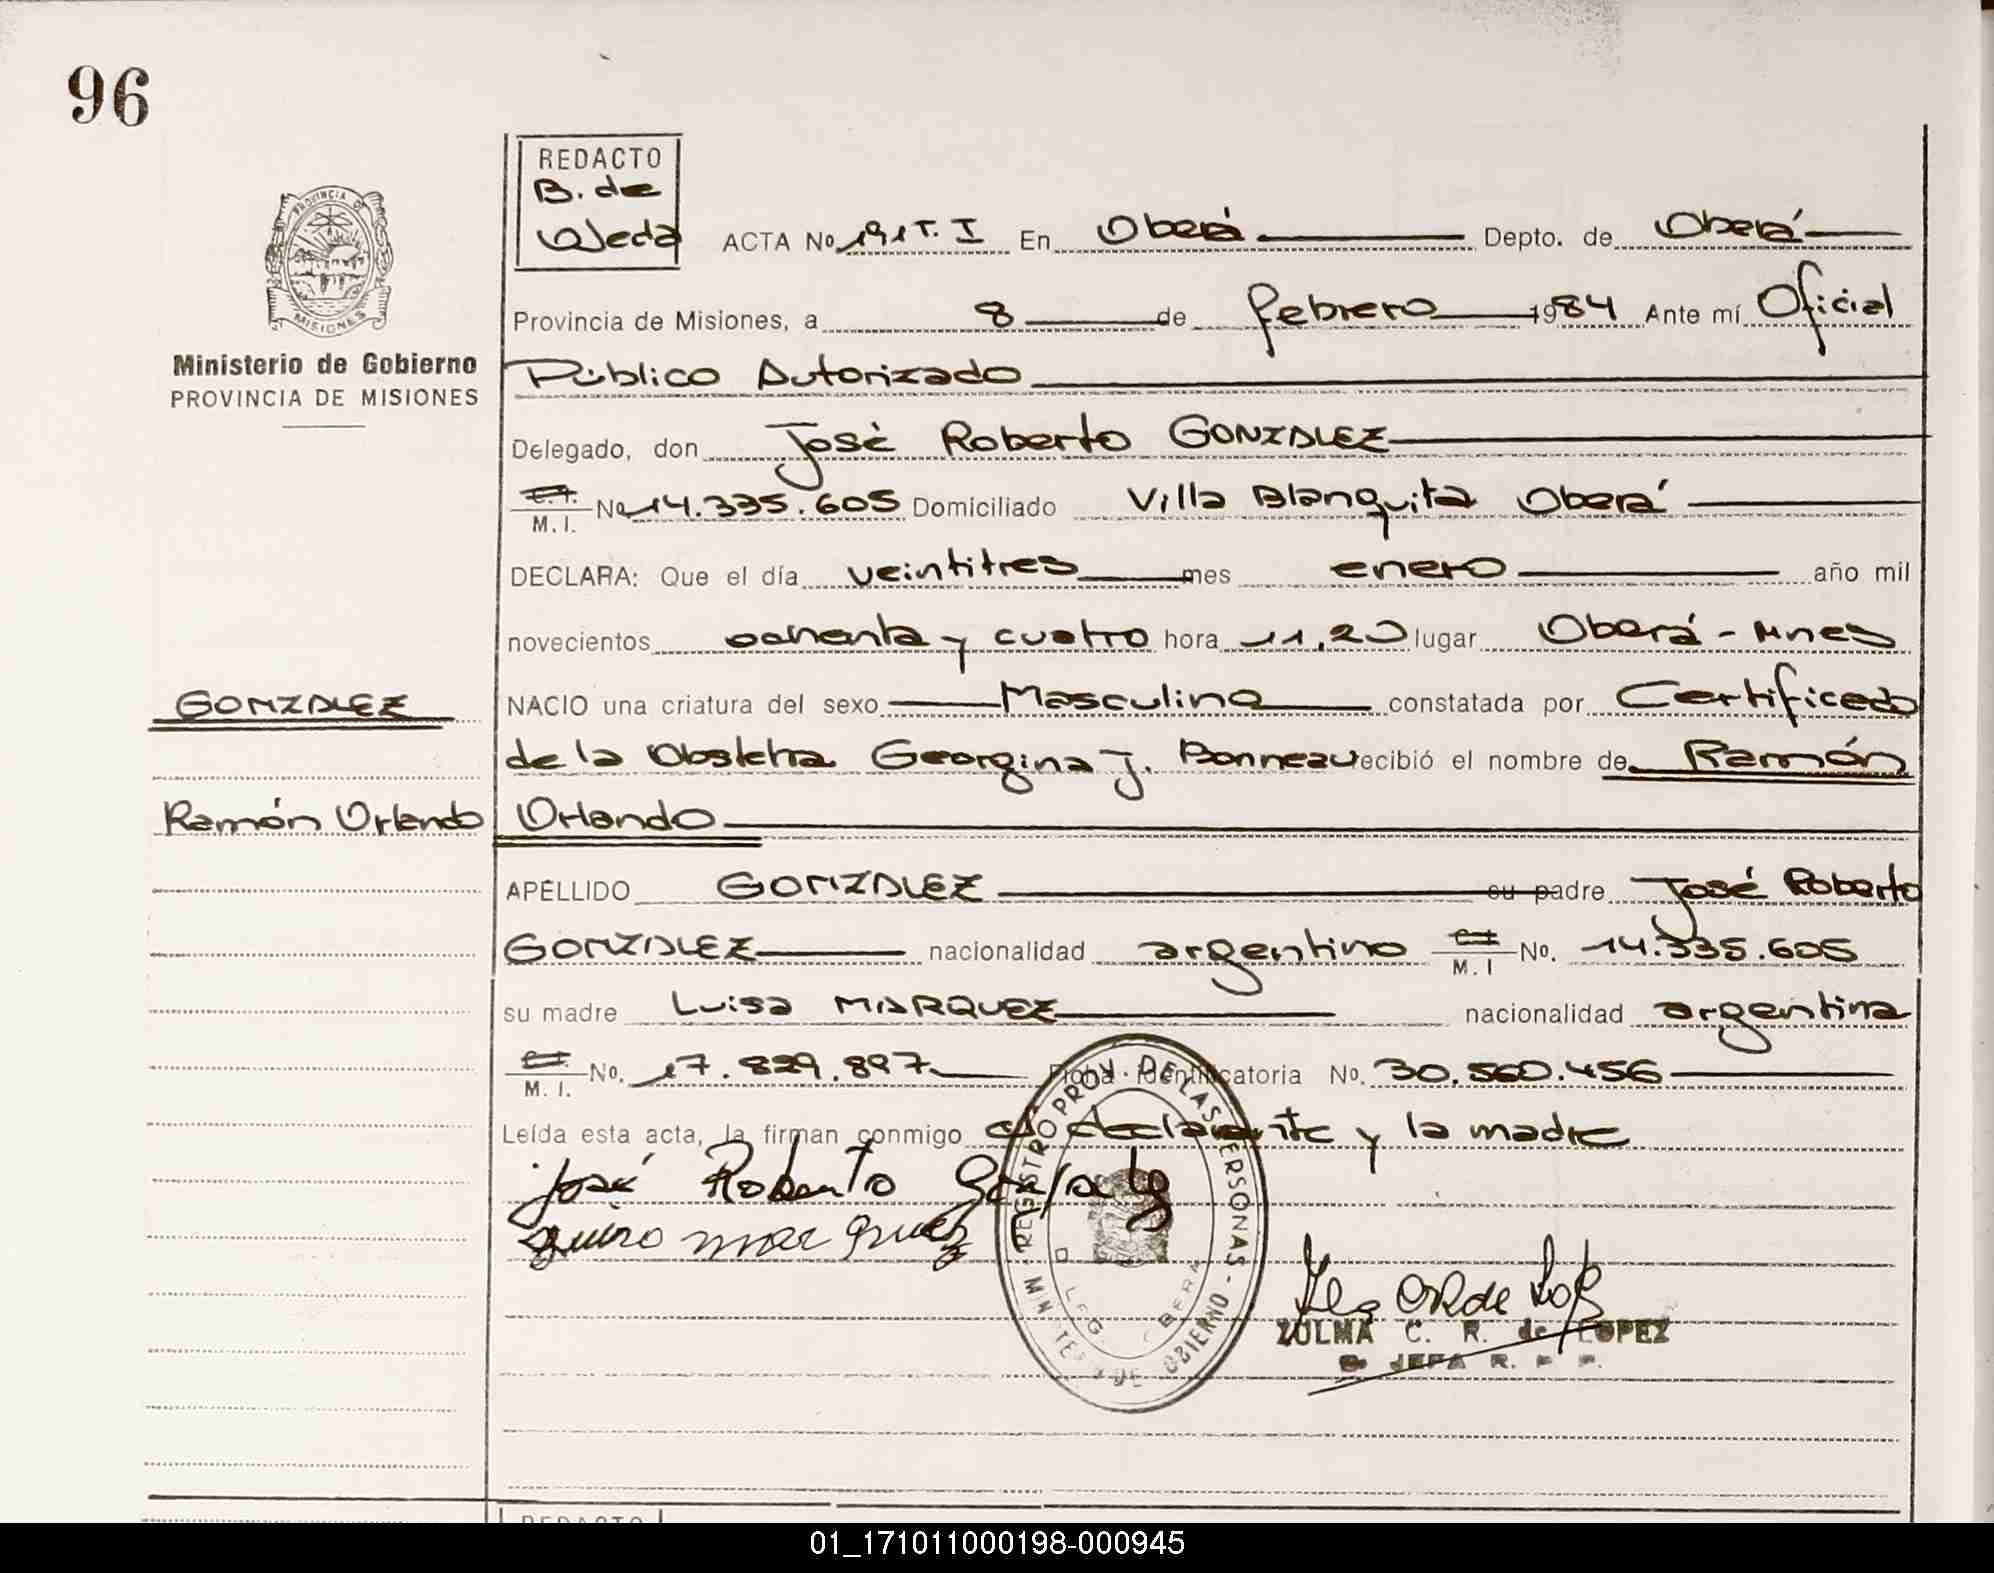 96
PROVINCIA DE
MISIONES
Ministerio de Gobierno
PROVINCIA DE MISIONES
REDACTO
B. de
Ojeda
ACTA No 191 T. I En Oberá Depto. de Oberá
Provincia de Misiones, a 8 de febrero 1984 Ante mí Oficial
Público Autorizado
Delegado, don José Roberto GONZALEZ
C.I. M. I. No 14.335.605 Domiciliado Villa Blanquita Oberá
DECLARA: Que el día veintitres mes enero año mil
novecientos ochenta y cuatro hora 11,20 lugar Oberá - Mnes
GONZALEZ
NACIO una criatura del sexo Masculino constatada por Certificado
de la Obstetra Georgina J. Bonneau recibió el nombre de Ramón
Ramón Orlando
Orlando
APELLIDO GONZALEZ su padre José Roberto
GONZALEZ nacionalidad argentino C.I. M. I No. 14.335.605
su madre Luisa MARQUEZ nacionalidad argentina
C.I. M. I. No. 17.829.897 Ficha Identificatoria No. 30.560.456
Leída esta acta, la firman conmigo el declarante y la madre
José Roberto Gonzalez
marquez
REGISTRO PROV. DE LAS PERSONAS - MINISTERIO DE GOBIERNO -
ZULMA C. R. de LOPEZ
JEFA R. P. P.
REDACTO
01_171011000198-000945